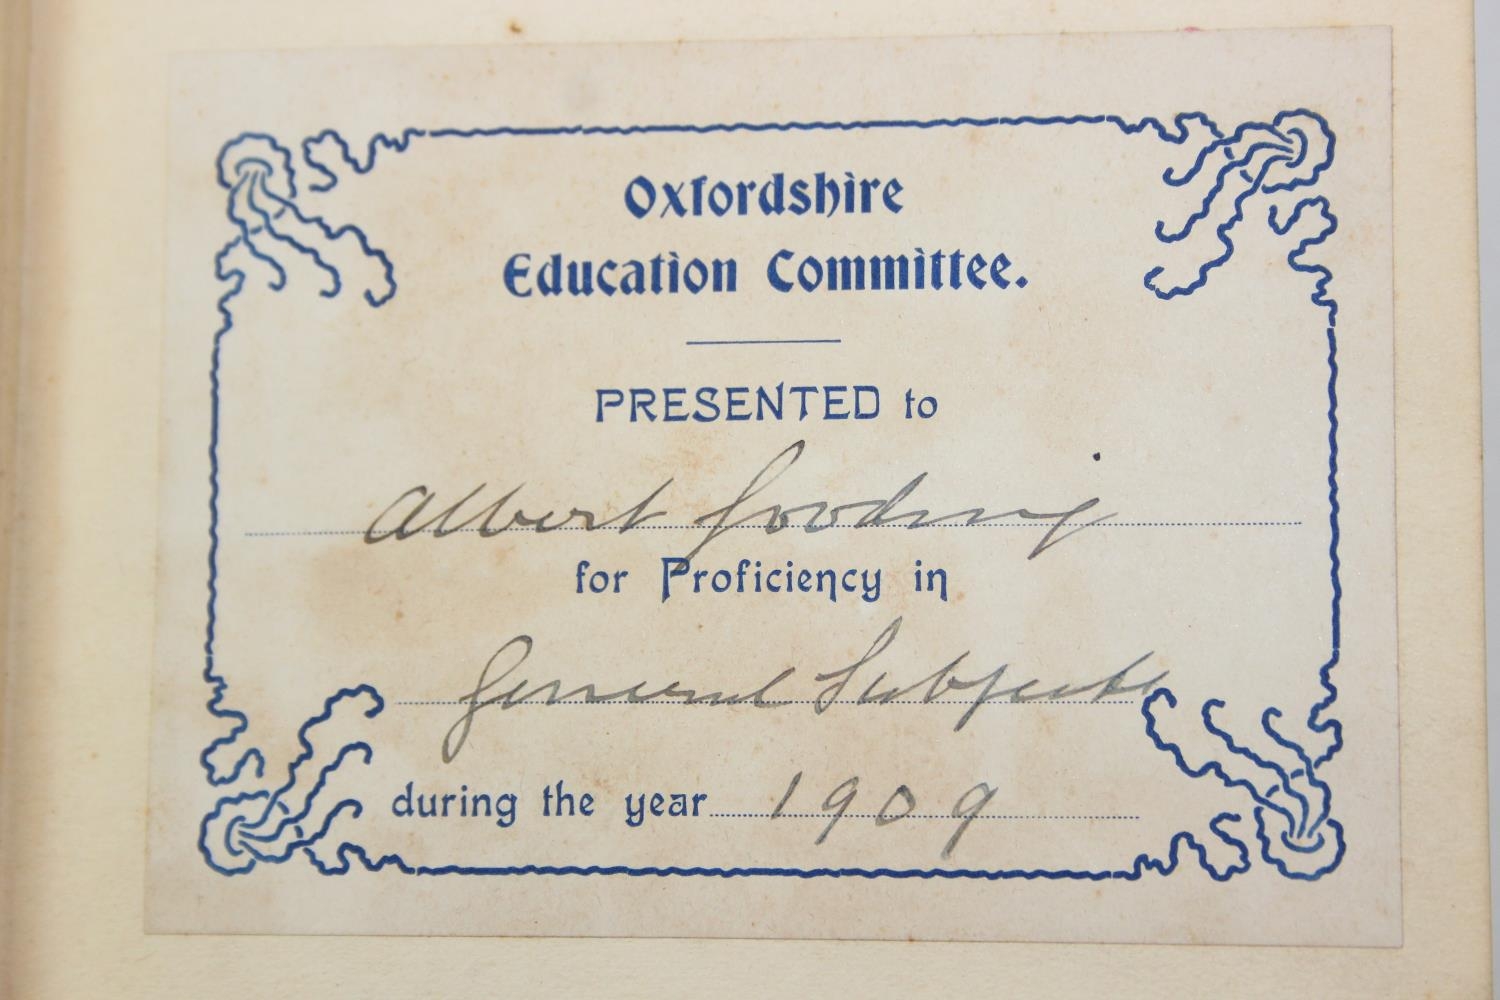 Oxfordshire
Education Committee.
PRESENTED to
Albert Gooding
for Proficiency in
General Subjects
during the year 1909